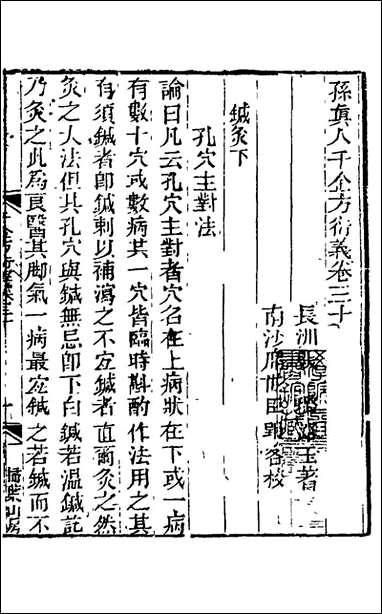 孫真人千金方衍義卷三十
長洲張璐路玉著
南沙席世臣郢客校
鍼灸下
孔穴主對法
論曰凡云孔穴主對者穴名在上病狀在下或一病
有數十穴或數病其一穴皆臨時斟酌作法用之其
有須鍼者即鍼刺以補瀉之不宜鍼者直爾灸之然
灸之大法但其孔穴與鍼無忌即下白鍼若溫鍼訖
乃灸之此為良醫其脚氣一病最宜鍼之若鍼而不
千金方衍義卷三十
一
掃葉山房